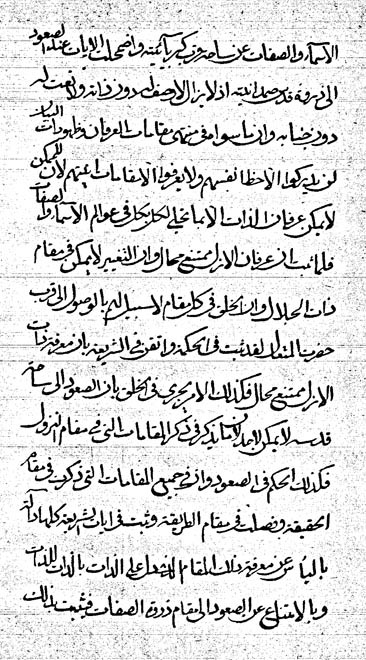 الاسماء والصفات عن ساحة قرب كبريائيته واضمحلت الايات عند الصعود
الى ذروة قدس صمدانيته اذ لايزال لاوصف له دون ذاته ولانعت له
دون جنابه وان ماسواه في منتهى مقامات العرفان وظهورات البيان
لن يدركوا الاحظ انفسهم ولايعرفوا الامقامات اعينهم لأن للممكن
لايمكن عرفان الذات الا بما تجلى لكل بكل في عوالم الاسماء والصفات
فلما ثبت ان عرفان الازل ممتنع محال وان التغيير لايمكن في مقام
ذات الجلال وان الخلق في كل مقام لا سبيل لهم بالوصول الى قرب
حضرة المتعال لقد ثبت في الحكمة واتقن في الشريعة بان معرفة ذات
الازل ممتنع محال فكذلك الامر يجري في الخلق بان الصعود الى ساحة
قدسه لايمكن لاحد لأن ما يذكر في ذكر المقامات التي في مقام النزول
فكذلك الحكم في الصعود وان في جميع المقامات التي ذكرت في مقام
الحقيقة وفصلت في مقام الطريقة وثبت في ايات الشريعة كلها دالة
باليأس عن معرفة ذلك المقام على الذات بالذات للذات
وبالامتناع عن الصعود الى مقام ذروة الصفات فيثبت بذلك